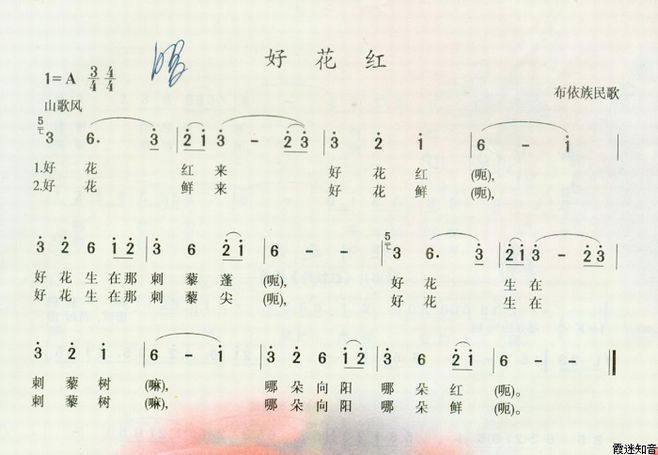 好 花 红
1=A 3/4 4/4
布依族民歌
山歌风
5 3 6. 3 | 2 1 3 - 2 3 | 3 2 1 | 6 - 1 |
1.好 花 红 来 好 花 红 (呃),
2.好 花 鲜 来 好 花 鲜 (呃),
3 2 6 1 2 | 3 6 2 1 | 6 - - | 5 3 6. 3 | 2 1 3 - 2 3 |
好 花 生 在 那 刺 藜 蓬 (呃), 好 花 生 在
好 花 生 在 那 刺 藜 尖 (呃), 好 花 生 在
3 2 1 | 6 - 1 | 3 2 6 1 2 | 3 6 2 1 | 6 - - ‖
刺 藜 树 (嘛), 哪 朵 向 阳 哪 朵 红 (呃)。
刺 藜 树 (嘛), 哪 朵 向 阳 哪 朵 鲜 (呃)。
霞迷知音